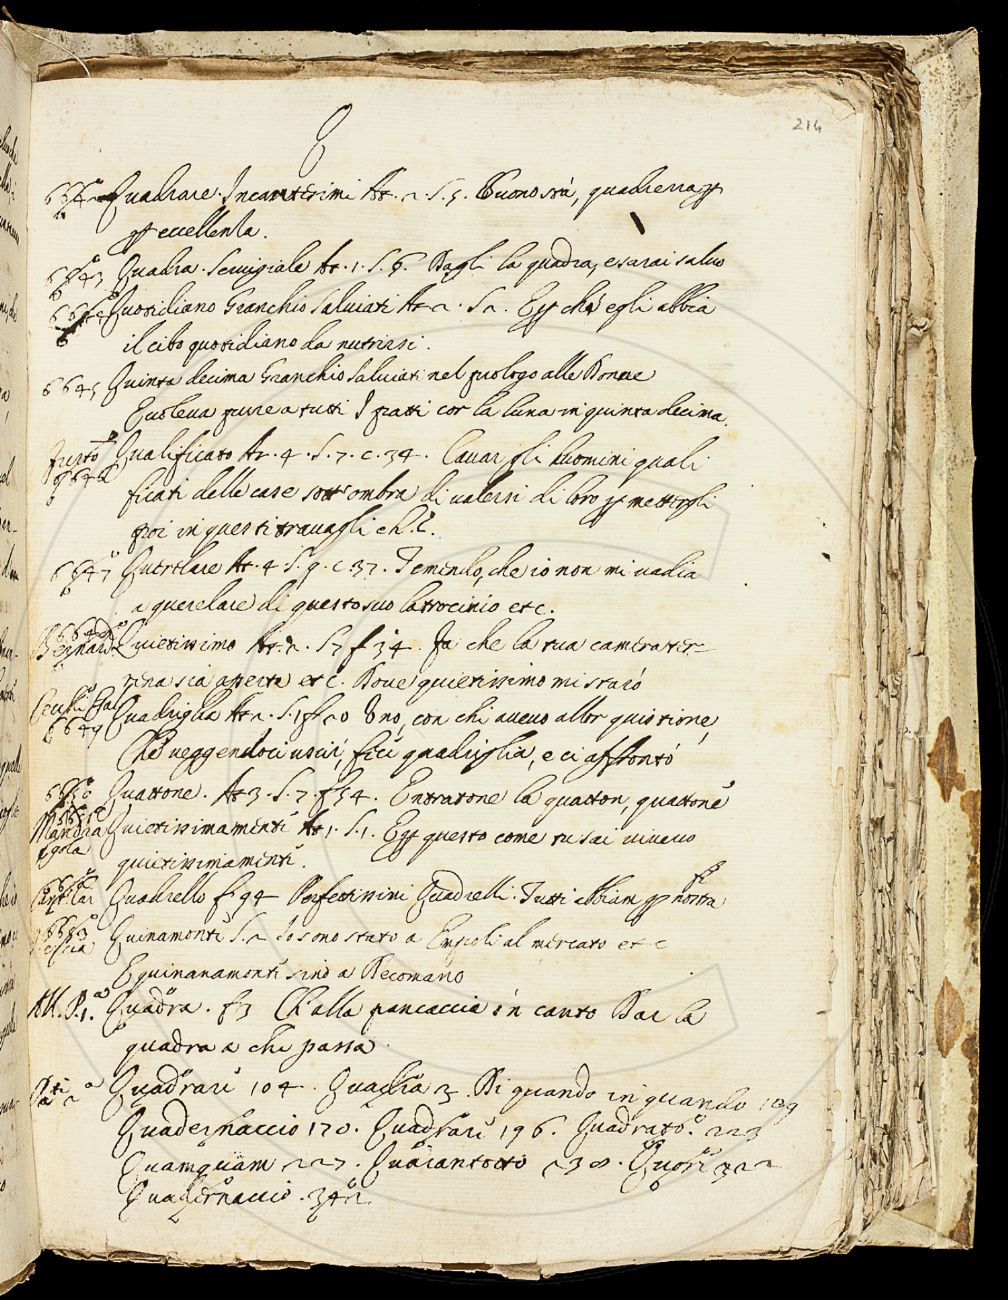 214
Q
Quadrare. Incantesimi At. 2. S. 5. Buono stà, quadrerra p
p eccellenla.
6643 Quadra. Servigiale At. 1. S. 6. Dagli la quadra, e sarai salvo
Quotidiano Granchio Salviati At 2. S 2. E p che egli abbia
il cibo quotidiano da nutrirsi.
6645 Quinta decima Granchio Salviati nel prologo alle Donne
E voleva pure a tutti I patti cor la luna in quinta decima.
6646 Qualificato At. 4. S. 7. c. 34. Cavar gli huomini quali
ficati delle case sott'ombra di valersi di loro p mettergli
poi in questi travagli
6647 Querelare At. 4 S. 9. c 37. Temendo, che io non mi vadia
a querelare di questo suo latrocinio etc.
Quietissimo At. 2. S 7 f 34. Fa che la tua camera ter=
rena sia aperta etc. Dove quietissimo mi starò
6649 Quadriglia At 2. S. 1 f 20 Uno, con chi avevo allor quistione,
Che veggendoci uscir, fici quadriglia, e ci affrontò
6650 Quattone. At 3. S. 7. f 54. Entratone la quatton, quattone
Mandragola Quietissimamente At 1. S. 1. E p questo come tu sai vivevo
quietissimamente.
Quadrello f 94 Perfettissimi Quadrelli. Tutti abbiam p nostra
6653 Quinamonte S. 2 Io sono stato a Empoli al mercato etc
E quinanamonte sino a Dicomano
All. P. 1. Quadra. f 3 Ch'alla pancaccia in canto Dar la
quadra a chi passa.
Quadrare 104. Quaglia 3. Di quando in quando 139
Quadernaccio 170. Quadrare 196. Quadrato. 223
Quamquam 227. Quarantotto 238. 322
Quadernaccio. 342